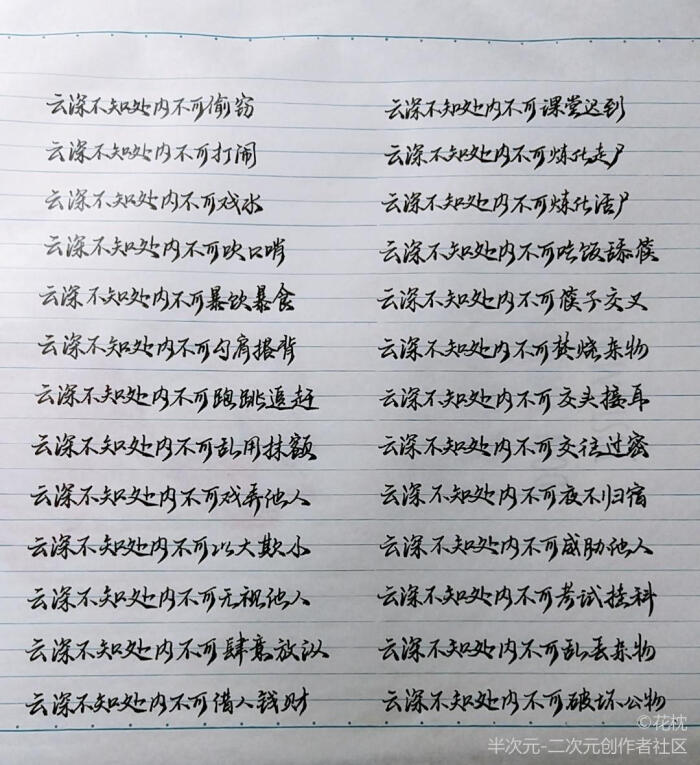 云深不知处内不可偷窃
云深不知处内不可打闹
云深不知处内不可戏水
云深不知处内不可吹口哨
云深不知处内不可暴饮暴食
云深不知处内不可勾肩搭背
云深不知处内不可跑跳追赶
云深不知处内不可乱用抹额
云深不知处内不可戏弄他人
云深不知处内不可以大欺小
云深不知处内不可无视他人
云深不知处内不可肆意放议
云深不知处内不可借人钱财
云深不知处内不可课堂迟到
云深不知处内不可炼化走尸
云深不知处内不可炼化活尸
云深不知处内不可吃饭舔筷
云深不知处内不可筷子交叉
云深不知处内不可焚烧杂物
云深不知处内不可交头接耳
云深不知处内不可交往过密
云深不知处内不可夜不归宿
云深不知处内不可威胁他人
云深不知处内不可考试挂科
云深不知处内不可乱丢杂物
云深不知处内不可破坏公物
©花枕
半次元-二次元创作者社区